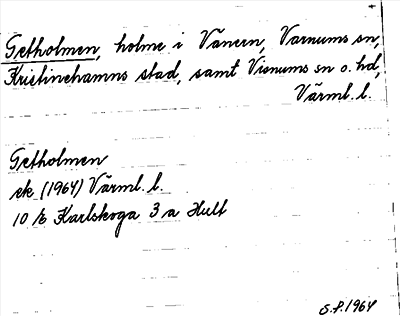 Getholmen, holme i Vänern, Varnums sn,
Kristinehamns stad, samt Visnums sn o. hd,
Värml. l.
Getholmen
ek (1964) Värml. l.
10 E Karlskoga 3 a Hult
S.P. 1964